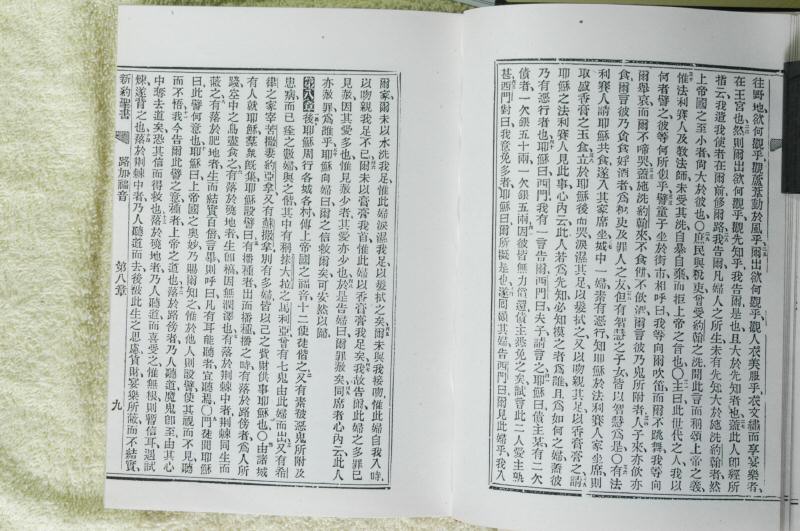 往野地欲何觀乎觀蘆葦動於風乎爾出欲何觀乎觀人衣美服乎衣文繡而享宴樂者
在王宮也然則爾出欲何觀乎觀先知乎我告爾是也且大於先知者也蓋此人即經所
指云我遣我使者在爾前修爾路我告爾凡婦人之所生未有先知大於施洗約翰者然
上帝國之至小者尚大於彼也〇庶民與稅吏曾受約翰之洗聞此言而稱頌上帝之義
惟法利賽人及教法師未受其洗自暴自棄而拒上帝之旨也〇主曰此世代之人我以
何者譬之彼等何所似乎譬童子坐於街市相呼曰我等向爾吹笛而爾不跳舞我等向
爾舉哀而爾不啼哭蓋施洗約翰來不食餅不飲酒爾言彼乃鬼所附者人子來亦飲亦
食爾言彼乃貪食好酒者為稅吏及罪人之友但有智慧之子女皆以智慧為是〇有法
利賽人請耶穌共食遂入其家席坐城中一婦素有惡行知耶穌於法利賽人家坐席則
取盛香膏之玉盒立於耶穌後而哭淚濕其足以髮拭之又以吻親其足以香膏膏之請
耶穌之法利賽人見此事心內云此人若為先知必知摸之者為誰且為如何之婦蓋彼
乃有惡行者也耶穌曰西門我有一言告爾西門曰夫子請言之耶穌曰債主某有二欠
債者一欠銀五十兩一欠銀五兩因彼皆無力償還債主悉免之矣試言此二人愛主孰
甚西門對曰我意免多者耶穌曰爾所擬是也遂回顧其婦告西門曰爾見此婦乎我入
爾家爾未以水洗我足惟此婦淚濕我足以髮拭之矣爾未與我接吻惟此婦自我入時
以吻親我足不已爾未以膏膏我首惟此婦以香膏膏我足矣故告爾此婦之多罪已
見赦因其愛多也惟見赦少者其愛亦少也於是告婦曰爾罪赦矣同席者心內云此人
亦赦罪乎誰乎耶穌向婦曰爾之信救爾矣可安然以歸
第八章後耶穌周行各城各村傳上帝國之福音十二使徒偕之又有素被惡鬼所附及
患病而已痊之數婦與之偕其中有稱抹大拉之馬利亞曾有七鬼由此婦而出又有希
律之家宰苦撒妻約亞拿又有蘇撒拿別有多婦皆以己之貲財供事耶穌也〇由諸城
有人就耶穌羣衆旣集耶穌設譬曰有播種者出而播種播之時有落於路傍者為人所
踐空中之鳥盡食之有落於磽地者生卽槁因無潤澤也有落於荆棘中者荆棘同生而
蔽之有落於肥地者生而結實百倍言畢則呼曰凡有耳能聽者宜聽焉〇門徒問耶穌
曰此譬何意也耶穌曰上帝國之奧妙乃賜爾知之惟於他人則設譬使其視而不見聽
而不悟我今告爾此譬之意種者上帝之道也落於路傍者乃人聽道魔鬼卽至由其心
中奪去道矣恐其信而得救也落於磽地者乃人聽道而喜受之惟無根則暫信耳遇試
煉遂背之也落於荆棘中者乃人聽道而去後被此生之思慮貲財宴樂所蔽而不結實
新約聖書
路加福音
第八章
九